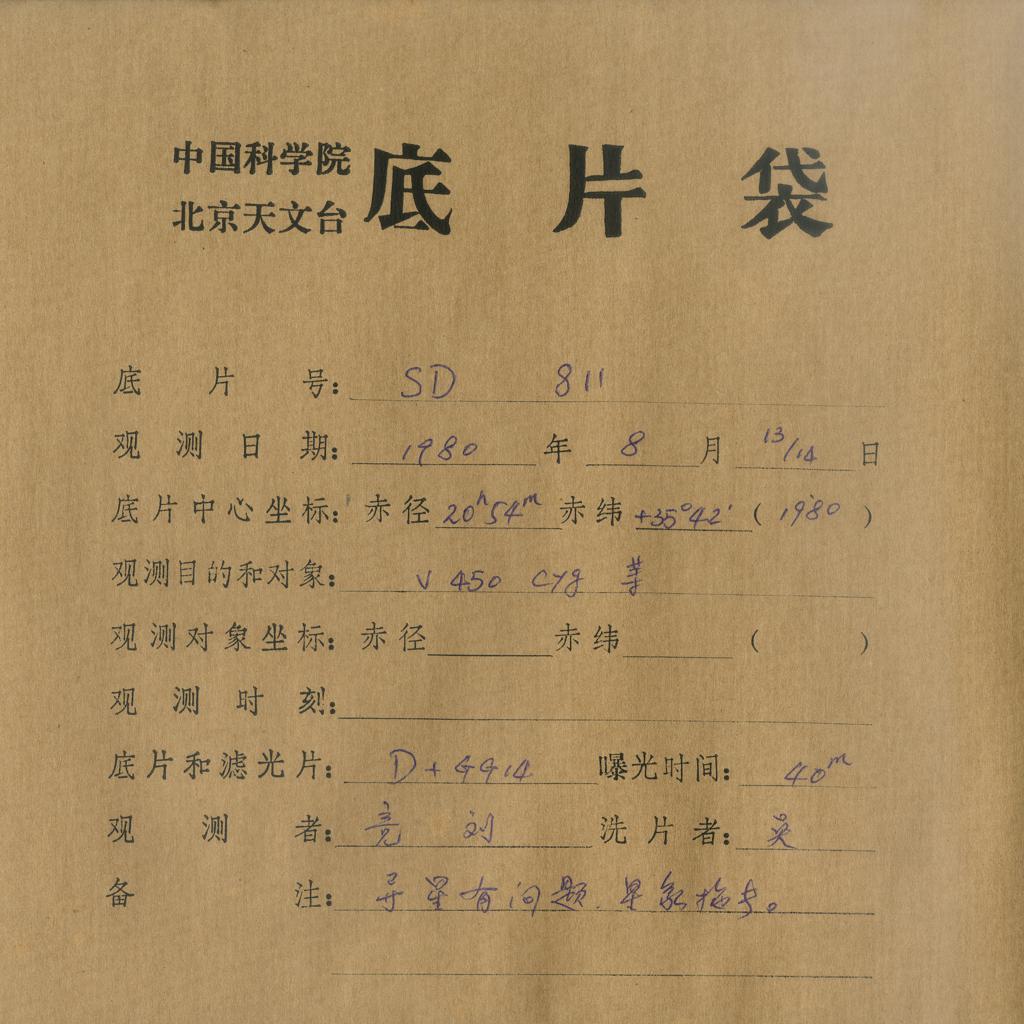 中国科学院
北京天文台
底片袋
底片号: SD 811
观测日期: 1980 年 8 月 13/14 日
底片中心坐标: 赤径 20h54m 赤纬 +35°42' (1980)
观测目的和对象: V 450 Cyg 等
观测对象坐标: 赤径 赤纬 ( )
观测时刻:
底片和滤光片: D + GG14 曝光时间: 40m
观测者: 刘 洗片者: 吴
备注: 导星有问题.星象拖长。